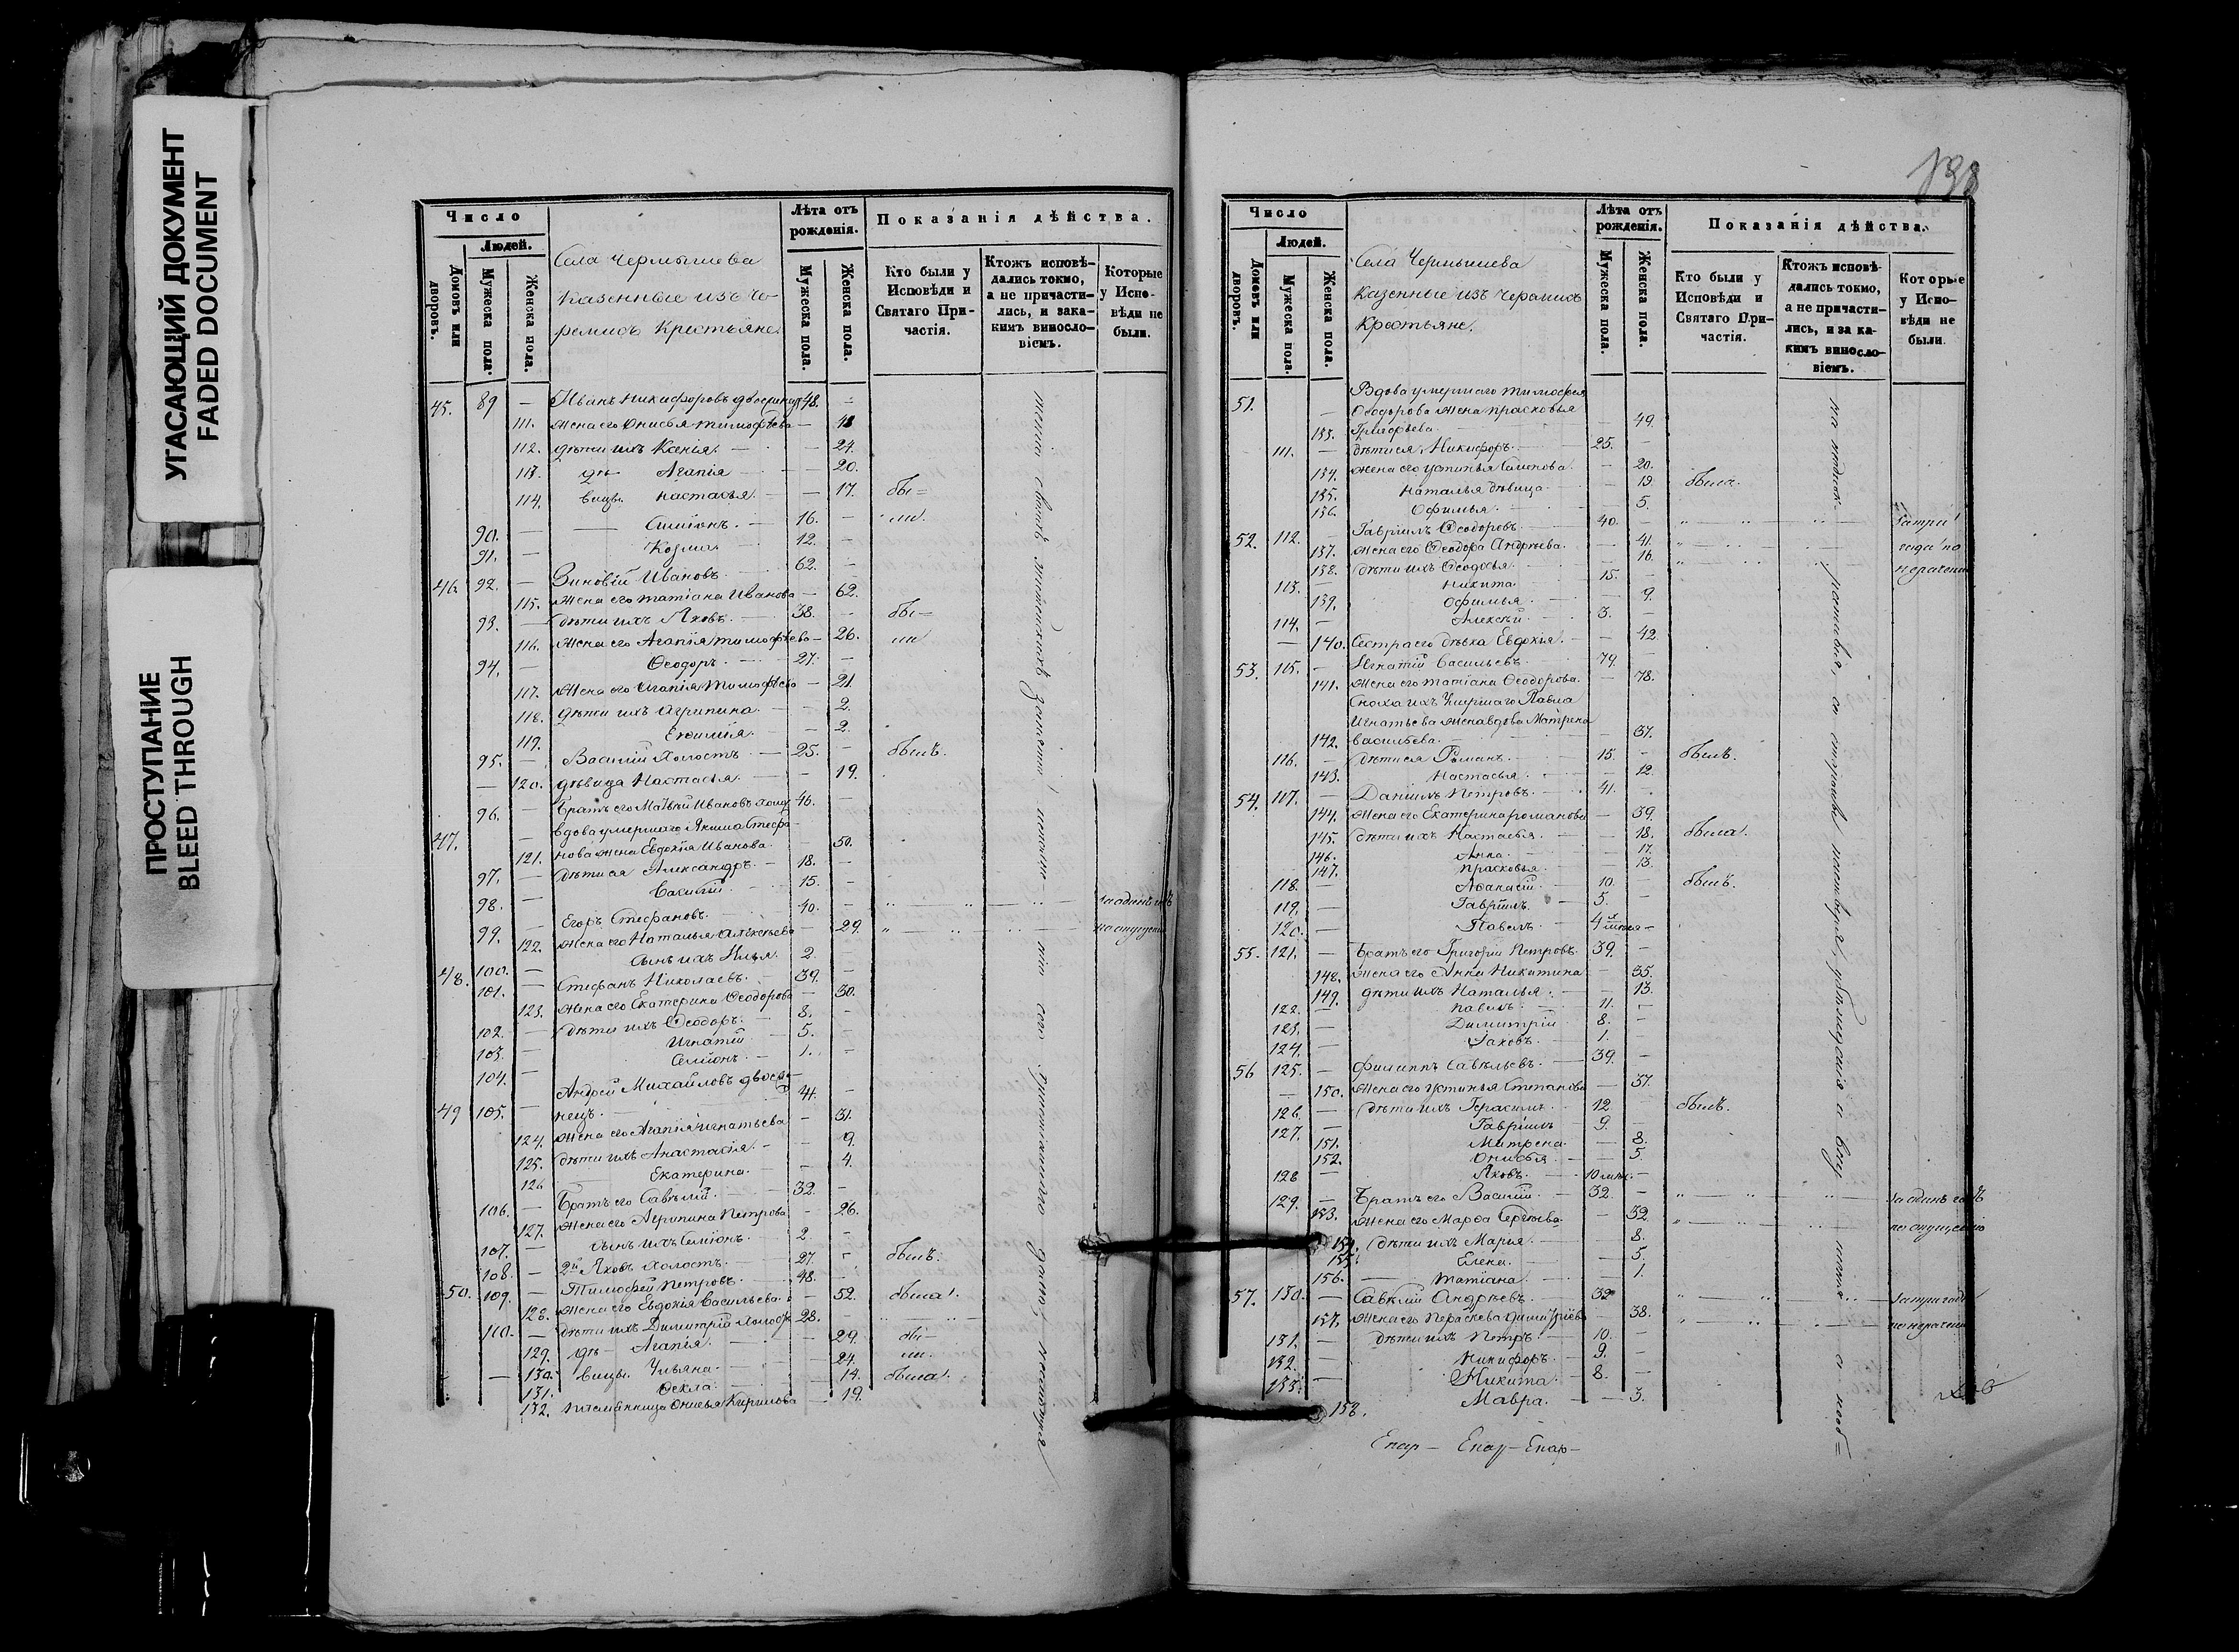 УГАСАЮЩИЙ ДОКУМЕНТ
FADED DOCUMENT
ПРОСТУПАНИЕ
BLEED THROUGH
Число
Людей.
Домовъ или дворовъ.
Мужеска пола.
Женска пола.
Села Чермышева
Казенные изъ Че-
ремисъ Крестьяне.
Лѣта отъ рожденія.
Мужеска пола.
Женска пола.
Показанія дѣйства.
Кто были у Исповѣди и Святаго Причастія.
Ктожъ исповѣдались токмо, а не причастились, и за какимъ винословіемъ.
Которые у Исповѣди не были.
45. 89 — Иванъ Никифоровъ 48. —
111. жена его Онисья Тимофѣева — 48
112. дѣти ихъ Ксенія. — 24.
113. дѣ- Агапія — 20.
114. вицы. Настасья. — 17. бы=
90. — Симіонъ. — 16. — ли.
91. — Козма. 12. —
46. 92. — Зиновій Ивановъ. 62. —
115. Жена его Татіана Иванова — 62.
93. — дѣти ихъ Яковъ. — 38. — бы=
116. Жена его Агапія Тимофѣева — 26. ли
94. — Ѳеодоръ. — 27. —
117. Жена его Агапія Тимофѣева — 21.
118. Дѣти ихъ Агрипина. — 2.
119. Евѳимія. — 2.
95. — Василій Холостъ — 25. — былъ.
— 120. дѣвица Настасья. — 19.
96. — Братъ его Матвѣй Ивановъ 46. —
Вдова умершаго Якима Стефа-
47. — 121. нова жена Евдокія Иванова. — 50.
97. — дѣти ея Александръ. — 18. —
98. — Василій. — 15. —
99. — Егоръ Стефановъ. 40. — за одинъ годъ
122. Жена его Наталья Алексѣева — 29. по опущенію
100. — Сынъ ихъ Илья. 2. —
48. 101. — Стефанъ Николаевъ. — 39. —
123. Жена его Екатерина Ѳеодорова — 30.
102. — Дѣти ихъ Ѳеодоръ. — 8. —
103. — Игнатій 5. —
104. — Симіонъ. — 1. —
Андрей Михайловъ двоежо-
49 105. — нецъ. 41. —
124. Жена его Агапія Игнатьева — 31.
125. дѣти ихъ Анастасія. — 9.
126 Екатерина. — 4.
106. — Братъ его Савелій. — 32. —
127. Жена его Агрипина Петрова — 26.
107. — Сынъ ихъ Симіонъ. 2. —
108. — 2й Яковъ Холостъ. — 27. — былъ.
50. 109. — Тимофей Петровъ. — 48. —
128. Жена его Евдокія Васильева. — 52. была.
110. — дѣти ихъ Димитрій 28. —
129. дѣ- Агапія. — 29. бы-
— 130. вицы. Ульяна. — 24. ли.
131. Ѳекла. — 14. была.
132. племянница Онисья Кирилова — 19.
Число
Людей.
Домовъ или дворовъ.
Мужеска пола.
Женска пола.
Села Чернышева
Казенные изъ Черемисъ
Крестьяне.
Лѣта отъ рожденія.
Мужеска пола.
Женска пола.
Показанія дѣйства.
Кто были у Исповѣди и Святаго Причастія.
Ктожъ исповѣдались токмо, а не причастились, и за какимъ винословіемъ.
Которые у Исповѣди не были.
Вдова умершаго Тимофея
51. — Ѳеодорова жена Прасковья
133. Григорьева. — 49.
111. — дѣти ея Никифоръ. 25. —
134. Жена его Устинья Симонова. — 20.
135. Наталья дѣвица. — 19. была.
136. Офимья. — 5.
52. 112. — Гавріилъ Ѳеодоровъ. 40. — за три
137. Жена его Ѳеодора Андреева. — 41. года по
138. дѣти ихъ Ѳеодосья. — 16. нераченію
113. — Никита. 15. —
139. Офимья. — 9.
114. — Алексѣй. — 3. —
— 140. Сестра его дѣвка Евдокія. — 42.
53. 115. — Игнатій Васильевъ. 79. —
141. Жена его Татіана Ѳеодорова. — 78.
Сноха ихъ Умершаго Павла
Игнатьева жена вдова Матрена
142. Васильева. — 37.
116. — дѣти ея Романъ. — 15. — былъ.
143. Настасья. — 12.
54. 117. — Даніилъ Петровъ. 41. —
144. Жена его Екатерина Романова — 39.
145. дѣти ихъ Настасья. — 18. была.
146. Анна. — 17.
147. Прасковья. — 13.
118. — Аѳанасій. 10. — былъ.
119. — Гавріилъ. 5. —
120. — Павелъ. 4 мѣсяца —
55. 121. — Братъ его Григорій Петровъ. 39. —
148. Жена его Анна Никитина — 35.
149. дѣти ихъ Наталья. — 13.
122. — Павелъ. 11. —
123. — Димитрій 8. —
124. — Іаковъ. 1. —
56 125. — Филиппъ Савельевъ. 39. —
— 150. Жена его Устинья Степанова — 37.
126. — дѣти ихъ Герасимъ. 12 былъ.
127. — Гавріилъ 9. —
151. Матрена. — 8.
152. Онисья. — 5.
128 — Яковъ. 10 мѣс. —
129. — Братъ его Василій. 32. — за одинъ годъ
153. Жена его Марѳа Сергѣева. — 32 по опущенію
154. Дѣти ихъ Марія. — 8.
155. Елена. — 5.
156. — Татіана. — 1.
57. 130. — Савелій Андреевъ. — 32 за три года
157. Жена его Параскева Димитріева — 38. по нераченію
131. — Дѣти ихъ Петръ. 10. —
132. — Никифоръ. 9. —
133. — Никита. 8. —
158. Мавра. — 3.
Епар- Епар- Епар-